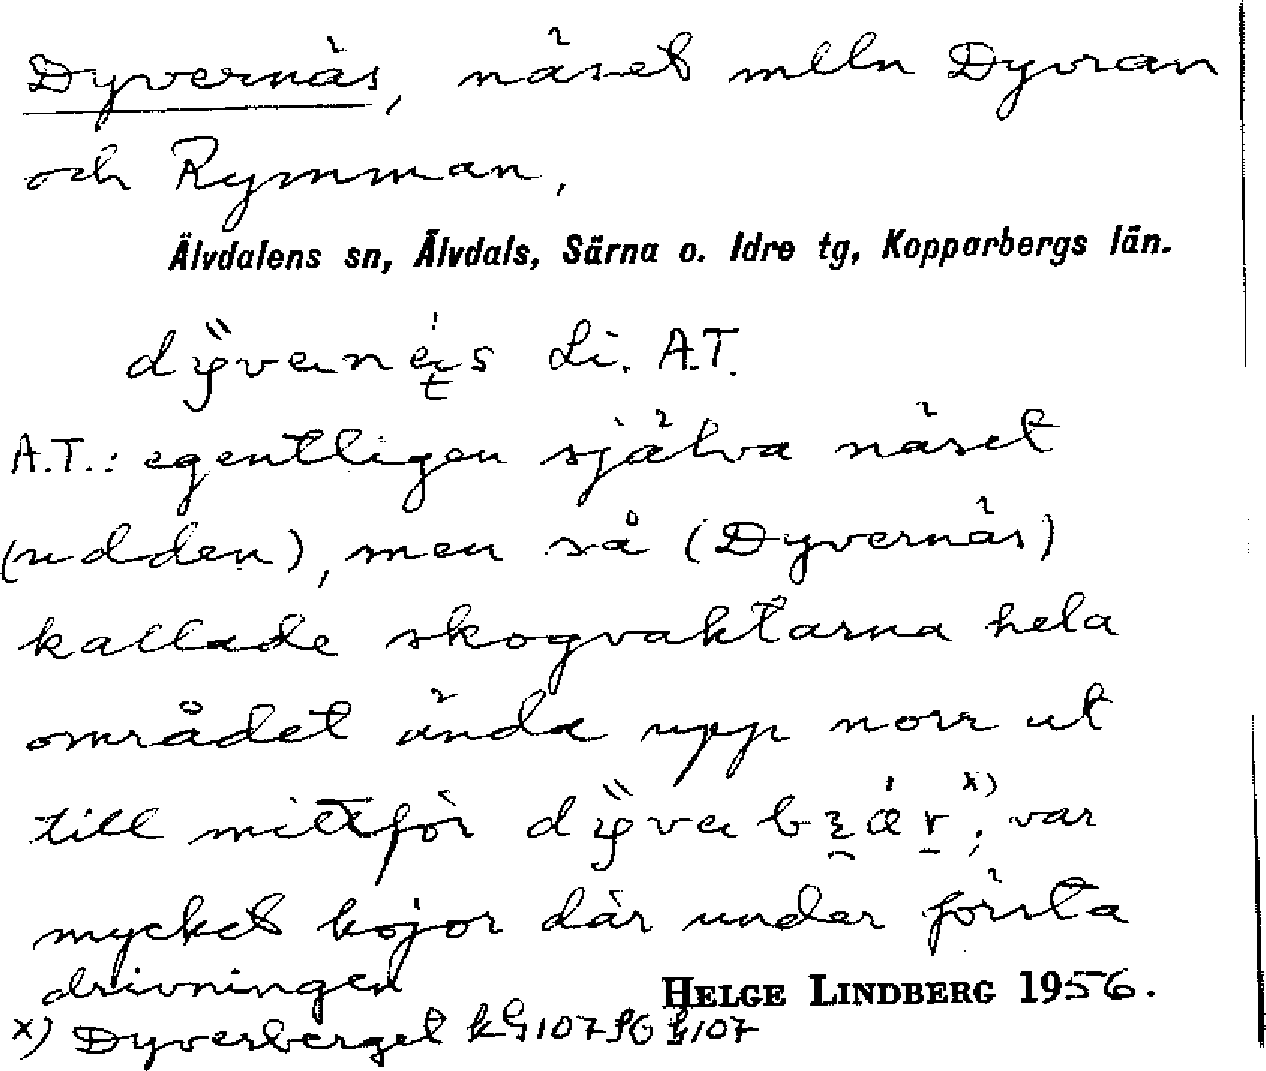 Dyvernäs, näset mlln Dyvran
och Rymman,
Älvdalens sn, Älvdals, Särna o. Idre tg, Kopparbergs län.
Li. A.T.
A.T.: egentligen själva näset
(udden), men så (Dyvernäs)
kallade skogvaktarna hela
området ända upp norr ut
till mittför x), var
mycket kojor där under första
drivningen
HELGE LINDBERG 1956.
x) Dyverberget